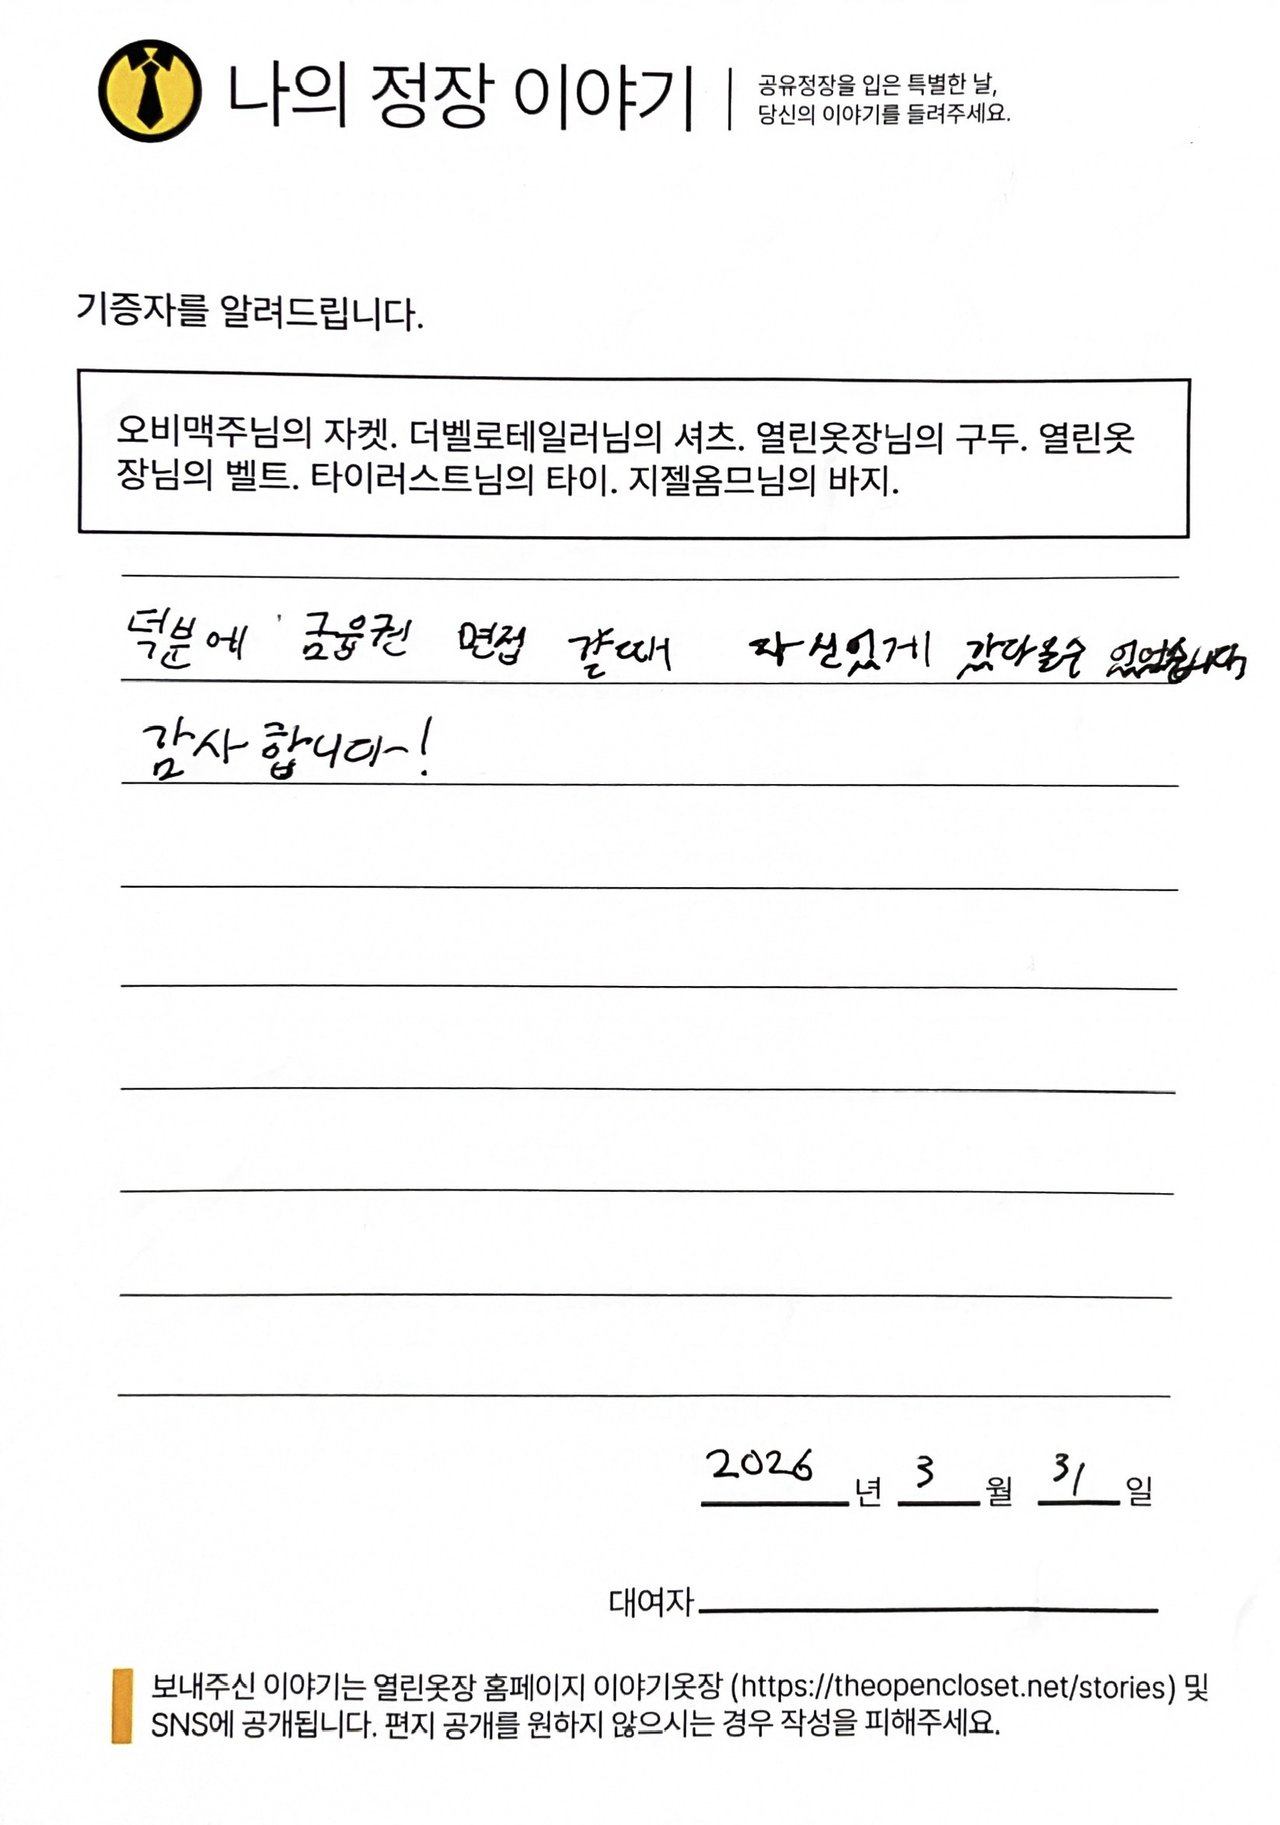 나의 정장 이야기
공유정장을 입은 특별한 날,
당신의 이야기를 들려주세요.
기증자를 알려드립니다.
오비맥주님의 자켓. 더벨로테일러님의 셔츠. 열린옷장님의 구두. 열린옷
장님의 벨트. 타이러스트님의 타이. 지젤옴므님의 바지.
덕분에 금융권 면접 갈때 자신있게 갔다올수 있었습니다,
감사합니다~!
2026 년 3 월 31 일
대여자
보내주신 이야기는 열린옷장 홈페이지 이야기옷장 (https://theopencloset.net/stories) 및
SNS에 공개됩니다. 편지 공개를 원하지 않으시는 경우 작성을 피해주세요.